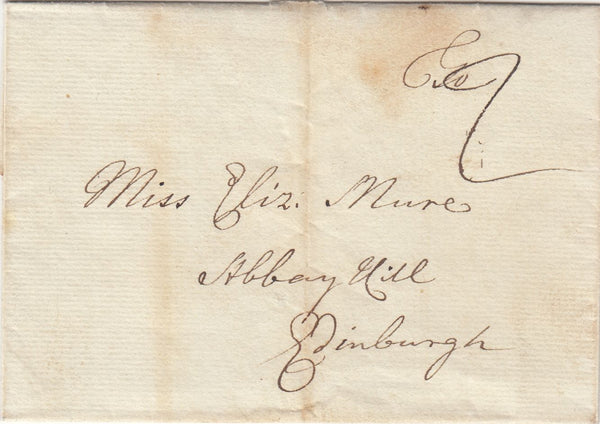 Miss Eliz: Mure
Abbay Hill
Edinburgh